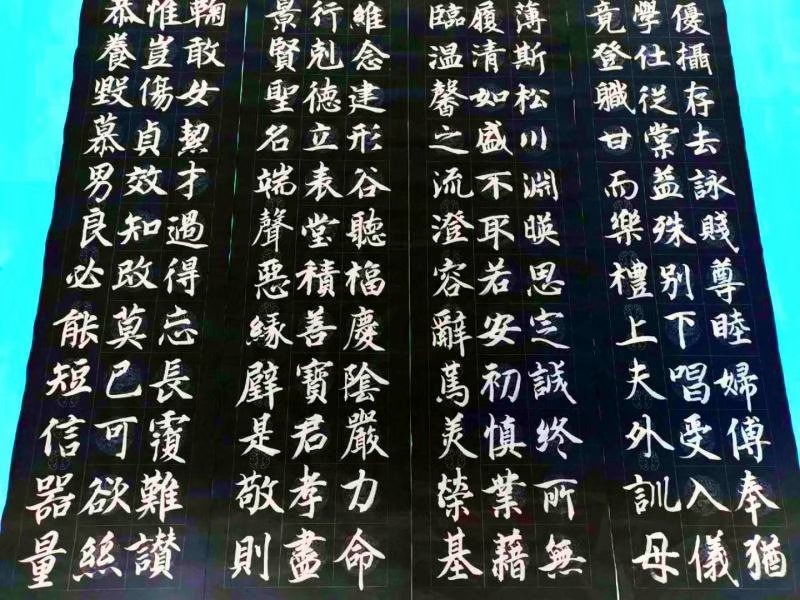 恭惟鞠
養豈敢
毀傷女
慕貞絜
男效才
良知過
必改得
能莫忘
短已長
信可覆
器欲難
量絲讃
景行維
賢剋念
聖德建
名立形
端表谷
聲堂聽
惡積福
緣善慶
璧寶陰
是君嚴
敬孝力
則盡命
臨履薄
溫清斯
馨如松
之盛川
流不淵
澄取暎
容若思
辭安定
篤初誠
美慎終
榮業所
基藉無
竟學優
登仕攝
職從存
甘棠去
而益詠
樂殊賤
禮別尊
上下睦
夫唱婦
外受傅
訓入奉
母儀猶